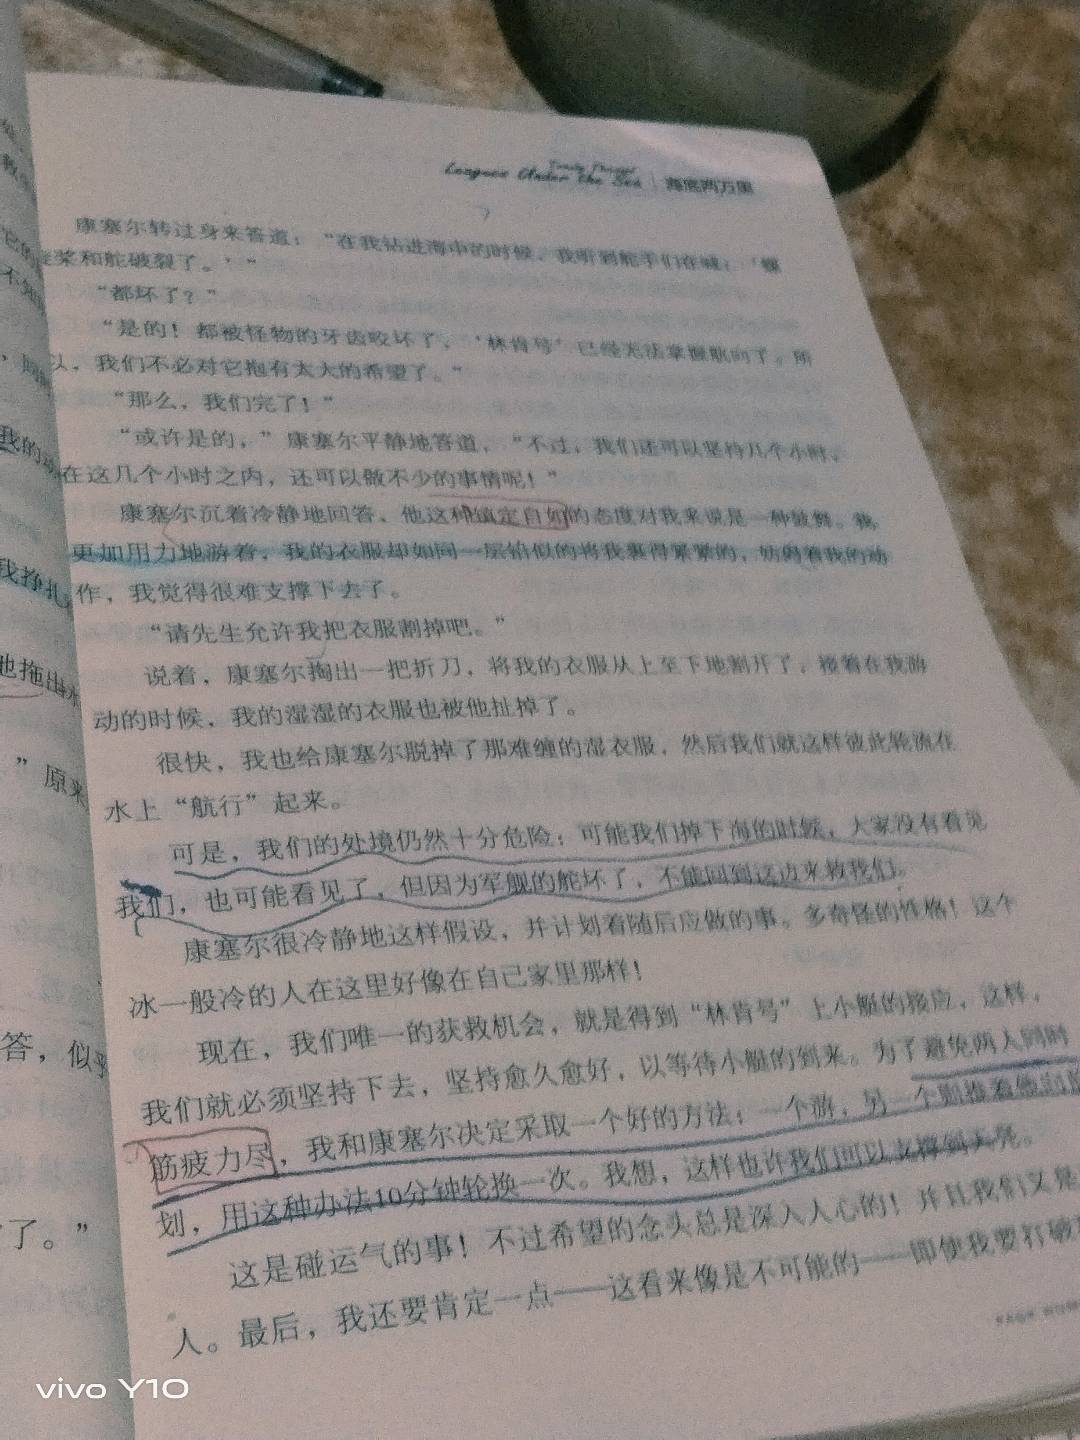 Twenty Thousand
Leagues Under the Sea | 海底两万里
康塞尔转过身来答道：“在我钻进海中的时候，我听到舵手们在喊：‘螺
旋桨和舵破裂了。’”
“都坏了？”
“是的！都被怪物的牙齿咬坏了，‘林肯号’已经无法掌握航向了。所
以，我们不必对它抱有太大的希望了。”
“那么，我们完了！”
“或许是的，”康塞尔平静地答道，“不过，我们还可以坚持几个小时，
在这几个小时之内，还可以做不少的事情呢！”
康塞尔沉着冷静地回答。他这种镇定自如的态度对我来说是一种鼓舞。我
更加用力地游着，我的衣服却如同一层铅似的将我裹得紧紧的，妨碍着我的动
作，我觉得很难支撑下去了。
“请先生允许我把衣服割掉吧。”
说着，康塞尔掏出一把折刀，将我的衣服从上至下地割开了，接着在我游
动的时候，我的湿湿的衣服也被他扯掉了。
很快，我也给康塞尔脱掉了那难缠的湿衣服，然后我们就这样彼此轮流在
水上“航行”起来。
可是，我们的处境仍然十分危险：可能我们掉下海的时候，大家没有看见
我们，也可能看见了，但因为军舰的舵坏了，不能回到这边来救我们。
康塞尔很冷静地这样假设，并计划着随后应做的事。多奇怪的性格！这个
冰一般冷的人在这里好像在自己家里那样！
现在，我们唯一的获救机会，就是得到“林肯号”上小艇的接应，这样，
我们就必须坚持下去，坚持愈久愈好，以等待小艇的到来。为了避免两人同时
筋疲力尽，我和康塞尔决定采取一个好的方法：一个游，另一个则推着他向
划，用这种办法10分钟轮换一次。我想，这样也许我们可以支撑到天亮。
这是碰运气的事！不过希望的念头总是深入人心的！并且我们又是
人。最后，我还要肯定一点——这看来像是不可能的——即使我要打破
我的动
我挣扎
他拖出水
”原来
答，似乎
了。”
vivo Y10